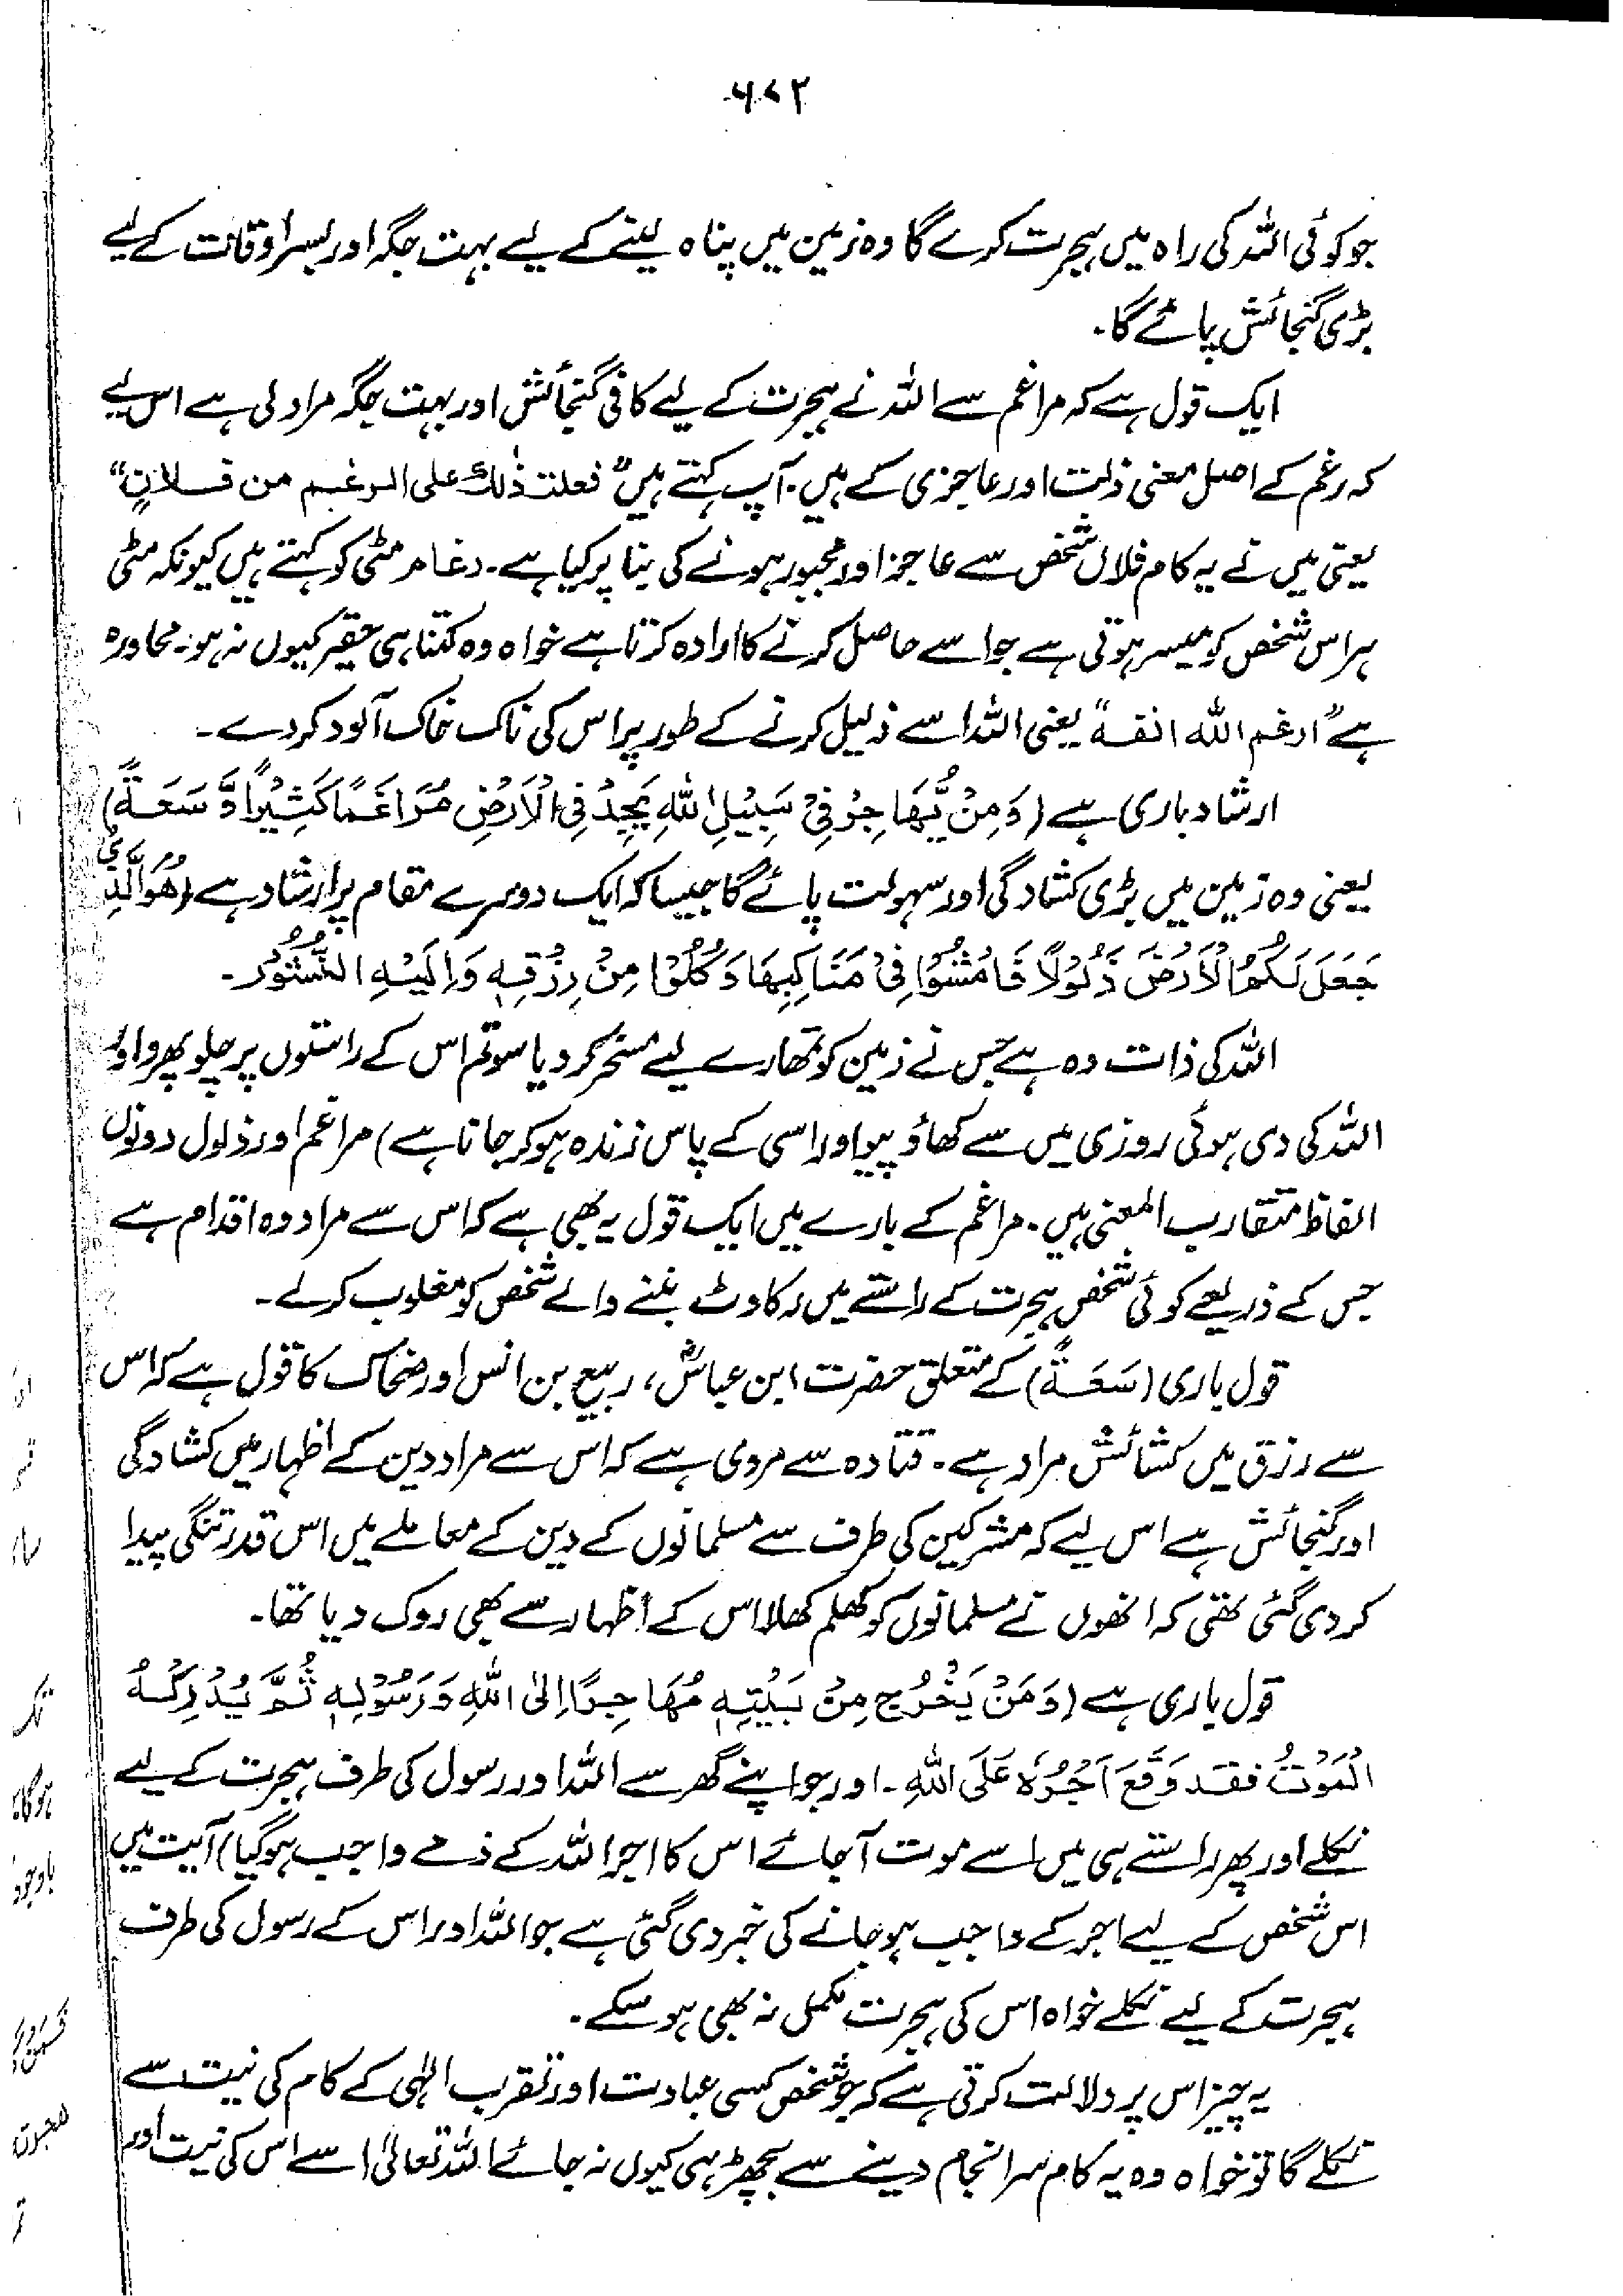 ۶۷۲
جو کوئی اللہ کی راہ میں ہجرت کرے گا وہ زمین میں پناہ لینے کے لیے بہت جگہ اور بسر اوقات کے لیے
بڑی گنجائش پائے گا۔
ایک قول ہے کہ مراغم سے اللہ نے ہجرت کے لیے کافی گنجائش اور بہت جگہ مراد لی ہے اس لیے
کہ رغم کے اصل معنی ذلت اور عاجزی کے ہیں۔ آپ کہتے ہیں "فعلت ذٰلك على الرغم من فلانٍ"
یعنی میں نے یہ کام فلاں شخص سے عاجز اور مجبور ہونے کی بنا پر کیا ہے۔ رغام مٹی کو کہتے ہیں کیونکہ مٹی
ہر اس شخص کو میسر ہوتی ہے جو اسے حاصل کرنے کا ارادہ کرتا ہے خواہ وہ کتنا ہی حقیر کیوں نہ ہو۔ محاورہ
ہے "ارغم الله انفه" یعنی اللہ اسے ذلیل کرنے کے طور پر اس کی ناک خاک آلود کر دے۔
ارشاد باری ہے (وَمِنْ يُّهَاجِرْ فِيْ سَبِيْلِ اللهِ يَجِدْ فِي الْاَرْضِ مُرَاغَمًا كَثِيْرًا وَّسَعَةً)
یعنی وہ زمین میں بڑی کشادگی اور سہولت پائے گا جیسا کہ ایک دوسرے مقام پر ارشاد ہے (هُوَ الَّذِيْ
جَعَلَ لَكُمُ الْاَرْضَ ذَلُوْلًا فَامْشُوْا فِيْ مَنَاكِبِهَا وَكُلُوْا مِنْ رِزْقِهٖ وَاِلَيْهِ النُّشُوْرُ۔
اللہ کی ذات وہ ہے جس نے زمین کو تمھارے لیے مسخر کر دیا سو تم اس کے راستوں پر چلو پھرو اور
اللہ کی دی ہوئی روزی میں سے کھاؤ پیو اور اسی کے پاس زندہ ہو کر جانا ہے) مراغم اور ذلول دونوں
الفاظ متقارب المعنی ہیں۔ مراغم کے بارے میں ایک قول یہ بھی ہے کہ اس سے مراد وہ اقدام ہے
جس کے ذریعے کوئی شخص ہجرت کے راستے میں رکاوٹ بننے والے شخص کو مغلوب کر لے۔
قول باری (سَعَةً) کے متعلق حضرت ابن عباسؓ، ربیع بن انس اور ضحاک کا قول ہے کہ اس
سے رزق میں کشائش مراد ہے۔ قتادہ سے مروی ہے کہ اس سے مراد دین کے اظہار میں کشادگی
اور گنجائش ہے اس لیے کہ مشرکین کی طرف سے مسلمانوں کے دین کے معاملے میں اس قدر تنگی پیدا
کر دی گئی تھی کہ انھوں نے مسلمانوں کو کھلم کھلا اس کے اظہار سے بھی روک دیا تھا۔
قول باری ہے (وَمَنْ يَخْرُجْ مِنْ بَيْتِهٖ مُهَاجِرًا اِلَى اللهِ وَرَسُوْلِهٖ ثُمَّ يُدْرِكْهُ
الْمَوْتُ فقد وَقَعَ اَجْرُهٗ عَلَى اللهِ۔ اور جو اپنے گھر سے اللہ اور رسول کی طرف ہجرت کے لیے
نکلے اور پھر راستے ہی میں اسے موت آ جائے اس کا اجر اللہ کے ذمے واجب ہو گیا) آیت میں
اس شخص کے لیے اجر کے واجب ہو جانے کی خبر دی گئی ہے جو اللہ اور اس کے رسول کی طرف
ہجرت کے لیے نکلے خواہ اس کی ہجرت مکمل نہ بھی ہو سکے۔
یہ چیز اس پر دلالت کرتی ہے کہ جو شخص کسی عبادت اور تقرب الٰہی کے کام کی نیت سے
نکلے گا تو خواہ وہ یہ کام سرانجام دینے سے بچھڑ ہی کیوں نہ جائے اللہ تعالیٰ اسے اس کی نیت اور